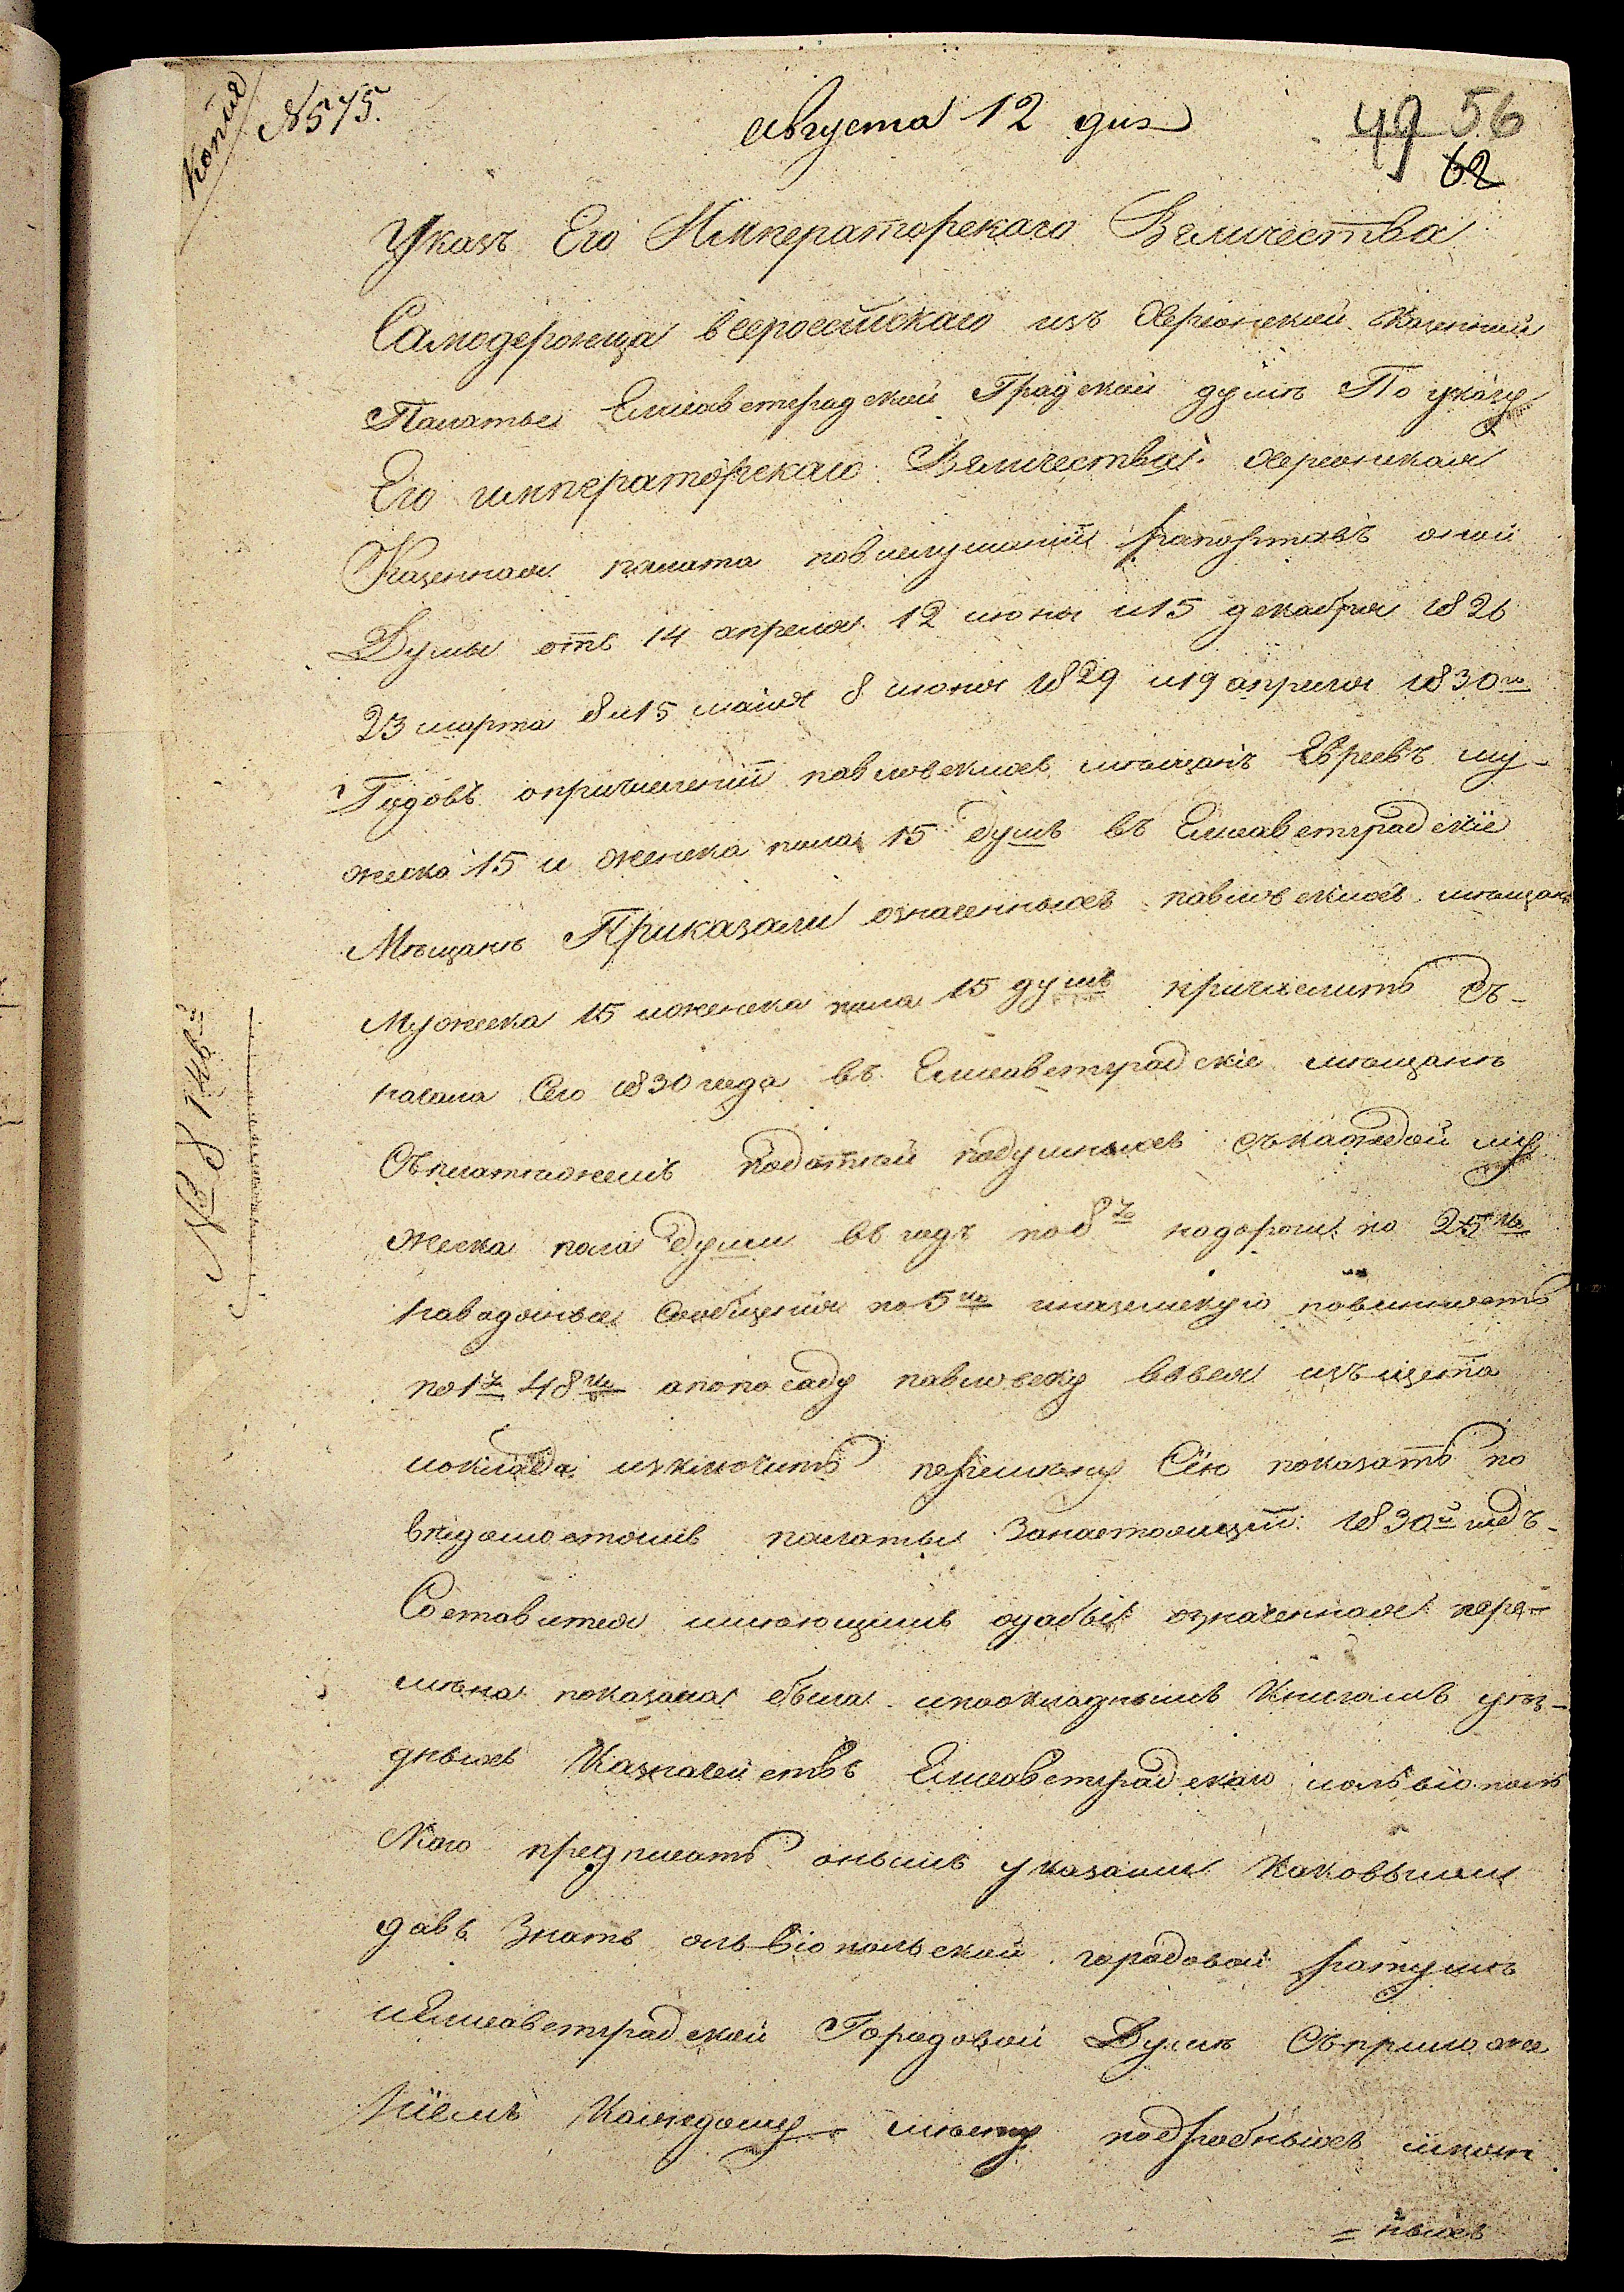 Копия
№ 575.
августа 12 дня
49 56
62
Указъ Его Императорскаго Величества
Самодержца всероссійскаго изъ Херсонской Казенной
Палаты Елисаветградской Градской думѣ По указу
Его императорскаго Величества Херсонская
Казенная палата повыслушаніи рапортовъ оной
Думы отъ 14 апреля 12 июня и 15 декабря 1826
23 марта 8 и 15 маия 8 июня 1829 и 19 апреля 1830го
Годовъ опричисленіи павловскихъ мѣщанъ Евреевъ му-
жеска 15 и женска пола 15 душъ въ Елисаветградскіе
Мѣщане Приказали означенныхъ павловскихъ мѣщанъ
Мужеска 15 иженска пола 15 душъ причислить съ-
начала Сего 1830 года въ Елисаветградскіе мѣщане
Съплатежемъ податей подушныхъ съкаждой му
жеска пола души въ годъ по 8 р. надороги по 25 ко
наводяные Сообщения по 5 ко иназемскую повинность
по 1 р. 48 ко апопосаду павловску вовсе изъ щета
иоклада изключить перемену Сію показать по
вѣдомостямъ палаты Занастоящій 1830й годъ-
Составится имеющимъ адабы означенная пере-
мѣна показана была ипоокладнымъ Книгамъ уѣз-
дныхъ Казначействъ Елисаветградскаго иольвіополь
скаго предписать онымъ указами каковыми
давъ Знать ольвіопольской городовой ратуше
иЕлисаветградской Городовой Думѣ Съприложе
ніемъ Каждому мѣсту подробныхъ имен
= ныхъ
№ 8